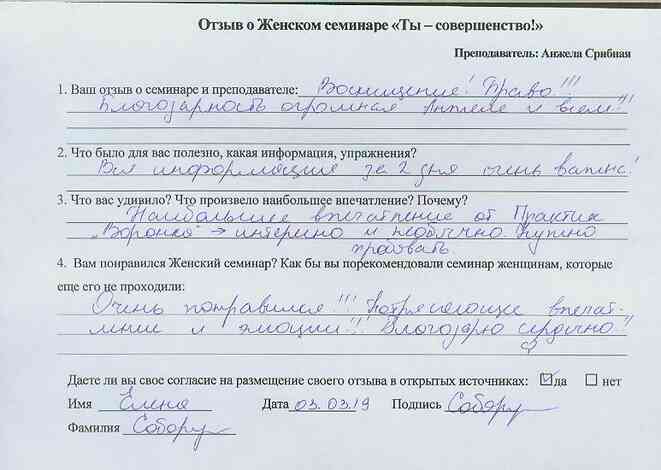 Отзыв о Женском семинаре «Ты – совершенство!»
Преподаватель: Анжела Срибная
1. Ваш отзыв о семинаре и преподавателе: Восхищение! Браво!!!
Благодарность огромная Анжеле и всем!!!
2. Что было для вас полезно, какая информация, упражнения?
Вся информация за 2 дня очень важна!
3. Что вас удивило? Что произвело наибольшее впечатление? Почему?
Наибольшее впечатление от Практик
„Воронка" → и необычно. Нужно
пробовать
4. Вам понравился Женский семинар? Как бы вы порекомендовали семинар женщинам, которые
еще его не проходили:
Очень понравился!!! Потрясающие впечат-
ление и эмоции!!! Благодарю сердечно!!
Даете ли вы свое согласие на размещение своего отзыва в открытых источниках: да нет
Имя Елена Дата 03.03.19 Подпись
Фамилия